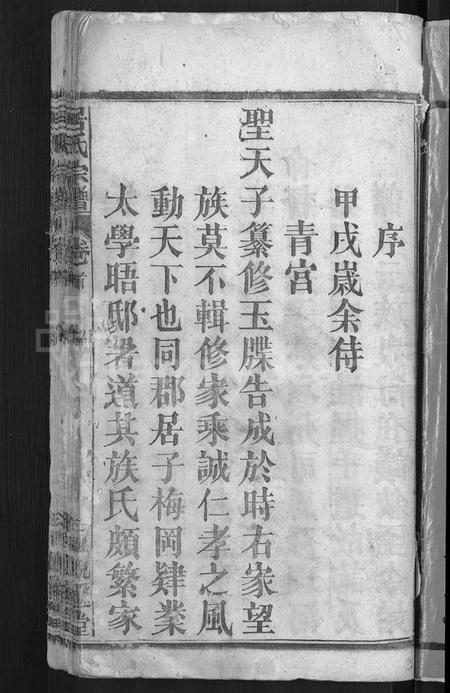 序
甲戌嵗余侍
青宮
聖天子纂修玉牒告成於時右家望
族莫不輯修家乘誠仁孝之風
動天下也同郡居子梅岡肄業
太學晤邸署道其族氏頗繁家
氏宗譜 卷首
堂